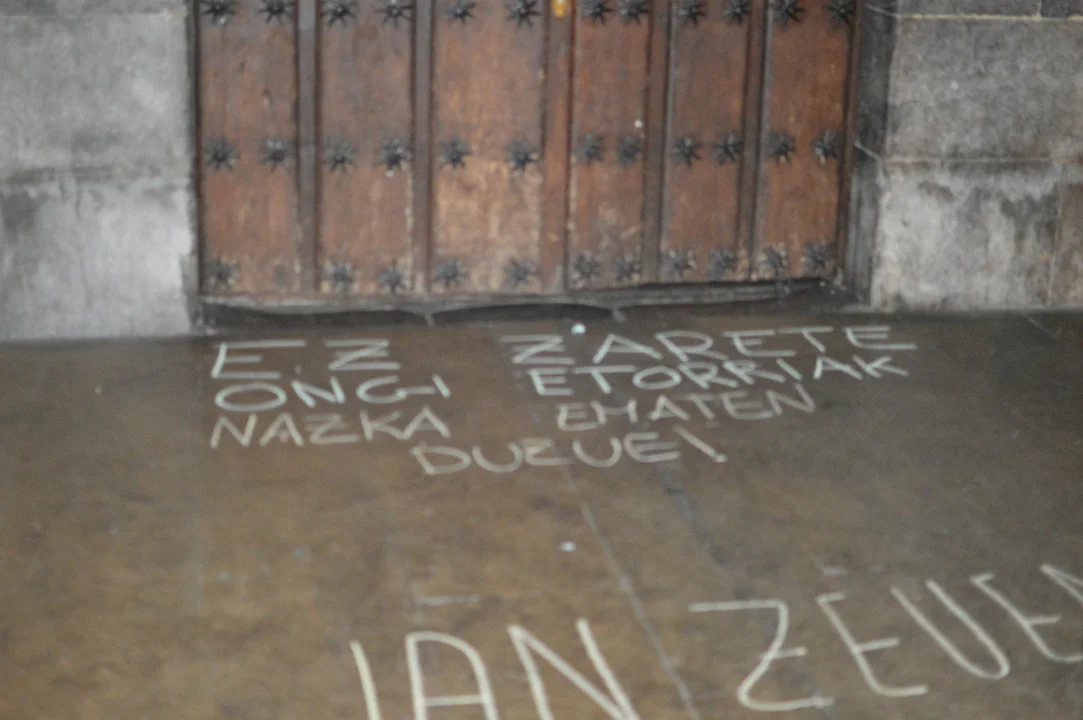 EZ ZARETE
ONGI ETORRIAK
NAZKA EMATEN
DUZUE!
JAN ZEUEN